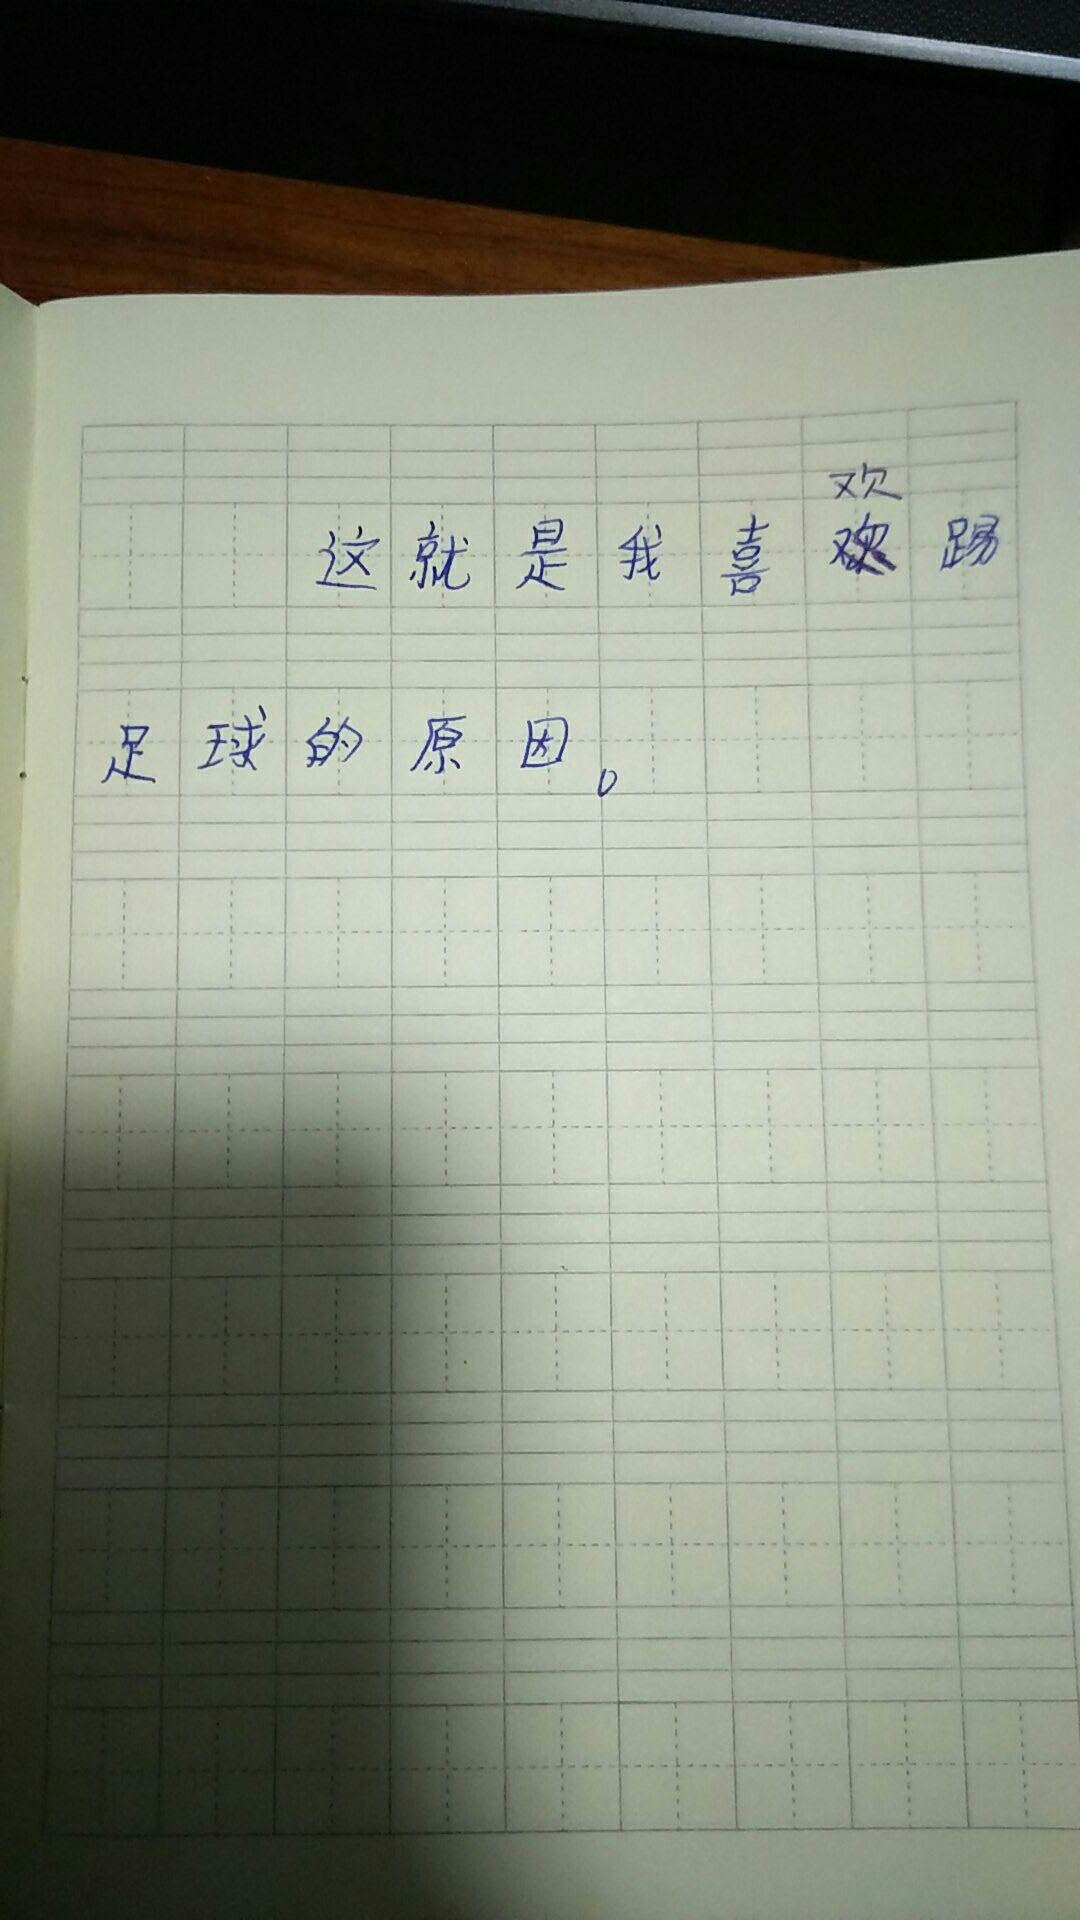 这就是我喜欢踢
足球的原因。